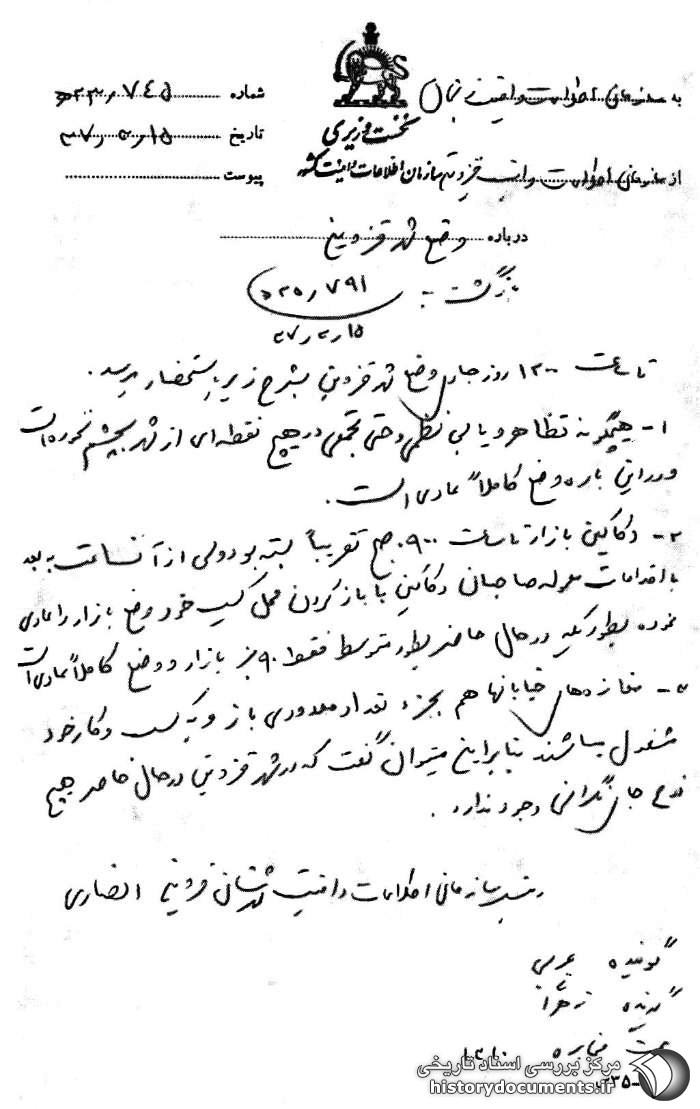 به سازمان اطلاعات و امنیت زنجان
شماره ۲۳۰/۷۴۵
نخست وزیری
تاریخ ۱۵/۳۷
از سازمان اطلاعات و امنیت قزوین سازمان اطلاعات و امنیت کشور
پیوست
درباره وضع شهر قزوین
بازگشت به ۲۵۰/۷۹۱
تا ساعت ۱۲۰۰ روز جاری وضع شهر قزوین بشرح زیر باستحضار میرسد.
۱- هیچگونه تظاهر و یا بی نظمی و حتی تجمعی در هیچ نقطه ای از شهر بچشم نخورده است
و در این باره وضع کاملاً عادی است.
۲- دکاکین بازار تا ساعت ۰۹۰۰ صبح تقریباً بسته بود ولی از آن ساعت به بعد
با اقدامات معموله صاحبان دکاکین با باز کردن محل کسب خود وضع بازار را عادی
نموده بطوریکه در حال حاضر بطور متوسط فقط ۹۰٪ بازار و وضع کاملاً عادی است
۳- مغازه های خیابانها هم بجز تعداد معدودی باز و به کسب و کار خود
مشغول میباشند بنابراین میتوان گفت که در شهر قزوین در حال حاضر هیچ
نوع جای نگرانی وجود ندارد.
رئیس سازمان اطلاعات و امنیت شهرستان قزوین انصاری
گوینده
گیرنده
ساعت مخابره
مرکز بررسی اسناد تاریخی
historydocuments.ir